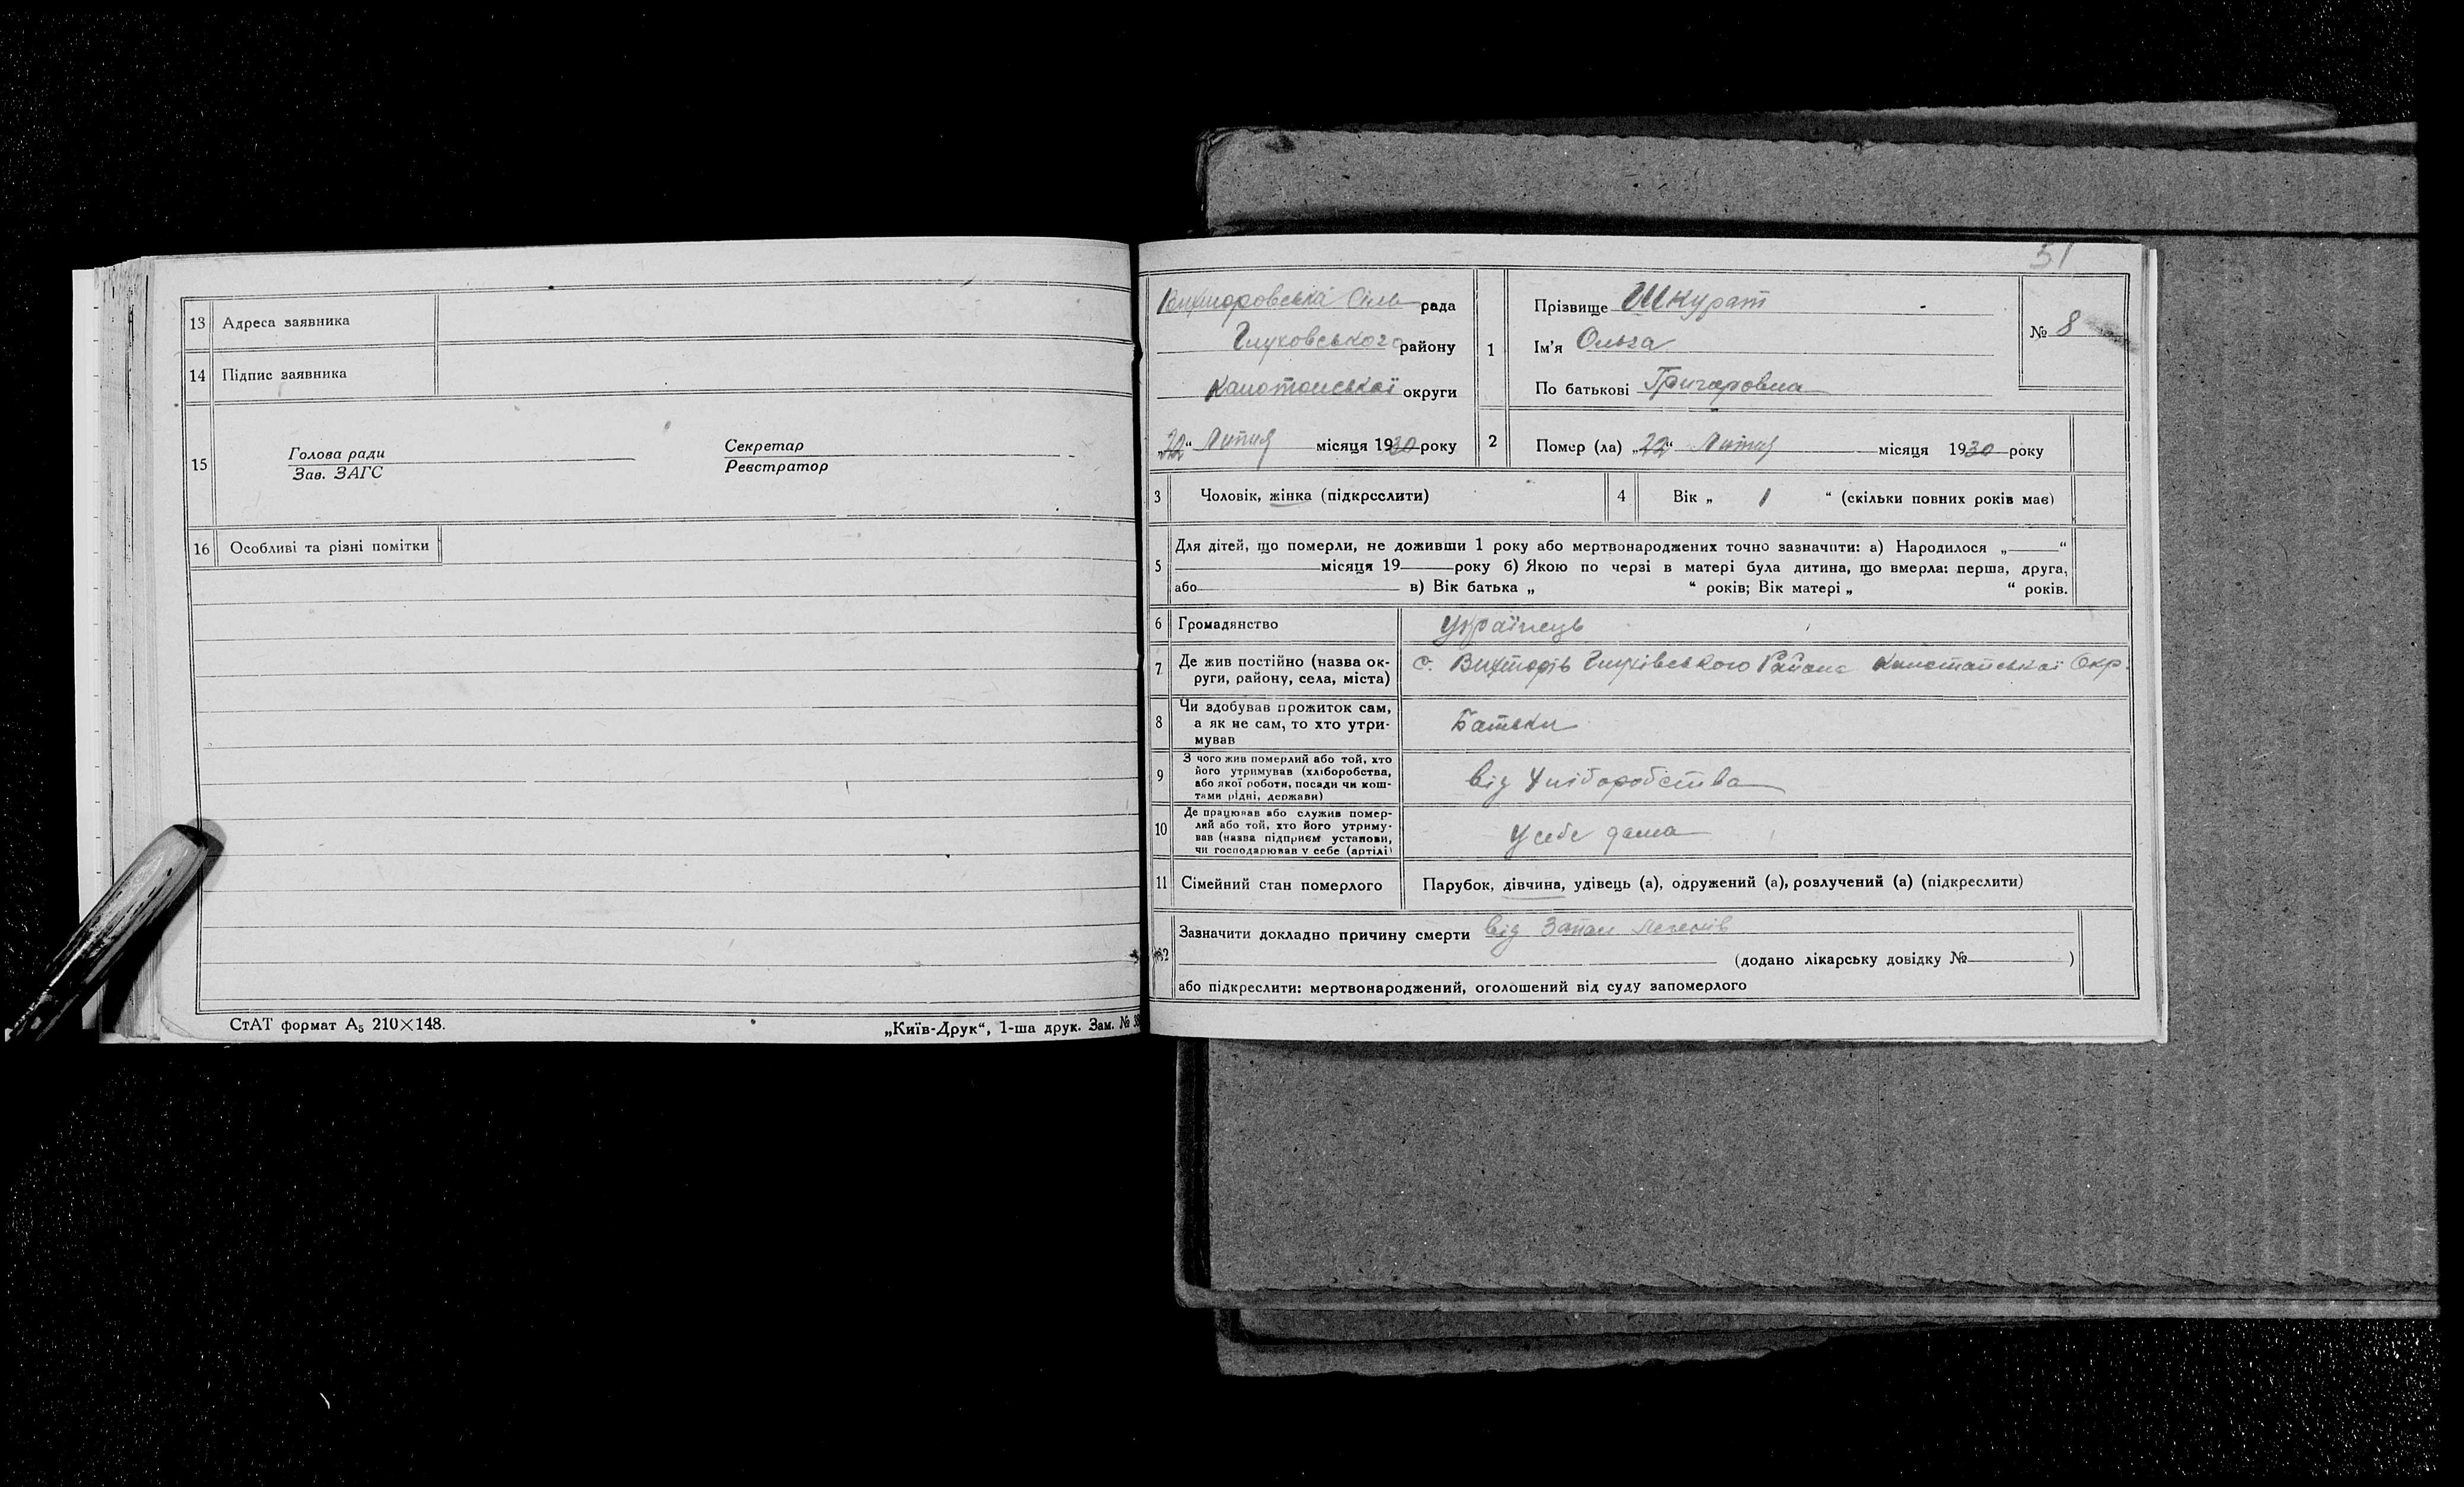 13 Адреса заявника
14 Підпис заявника
15 Голова ради Секретар
Зав. ЗАГС Реєстратор
16 Особливі та різні помітки
СтАТ формат А₅ 210×148.
„Київ-Друк“, 1-ша друк. Зам. №
51
Вихторовська Сіль рада
Глуховського району
Канотопської округи
„22“ Липня місяця 1930 року
1 Прізвище Шкурат
Ім'я Ольга
По батькові Григоровна
№ 8
2 Помер (ла) „22“ Липня місяця 1930 року
3 Чоловік, жінка (підкреслити)
4 Вік „ 1 “ (скільки повних років має)
5 Для дітей, що померли, не доживши 1 року або мертвонароджених точно зазначити: а) Народилося „ “
місяця 19 року б) Якою по черзі в матері була дитина, що вмерла: перша, друга,
або в) Вік батька „ “ років; Вік матері „ “ років.
6 Громадянство українець
7 Де жив постійно (назва ок-
руги, району, села, міста) с. Вихторів Глухівського Района Канотопської Окр.
8 Чи здобував прожиток сам,
а як не сам, то хто утри-
мував Батьки
9 З чого жив померлий або той, хто
його утримував (хліборобства,
або якої роботи, посади чи кош-
тами рідні, держави) від Хліборобства
10 Де працював або служив помер-
лий або той, хто його утриму-
вав (назва підприєм установи,
чи господарював у себе (артілі) У себе дома
11 Сімейний стан померлого Парубок, дівчина, удівець (а), одружений (а), розлучений (а) (підкреслити)
12 Зазначити докладно причину смерти від Запал легенів
(додано лікарську довідку № )
або підкреслити: мертвонароджений, оголошений від суду запомерлого